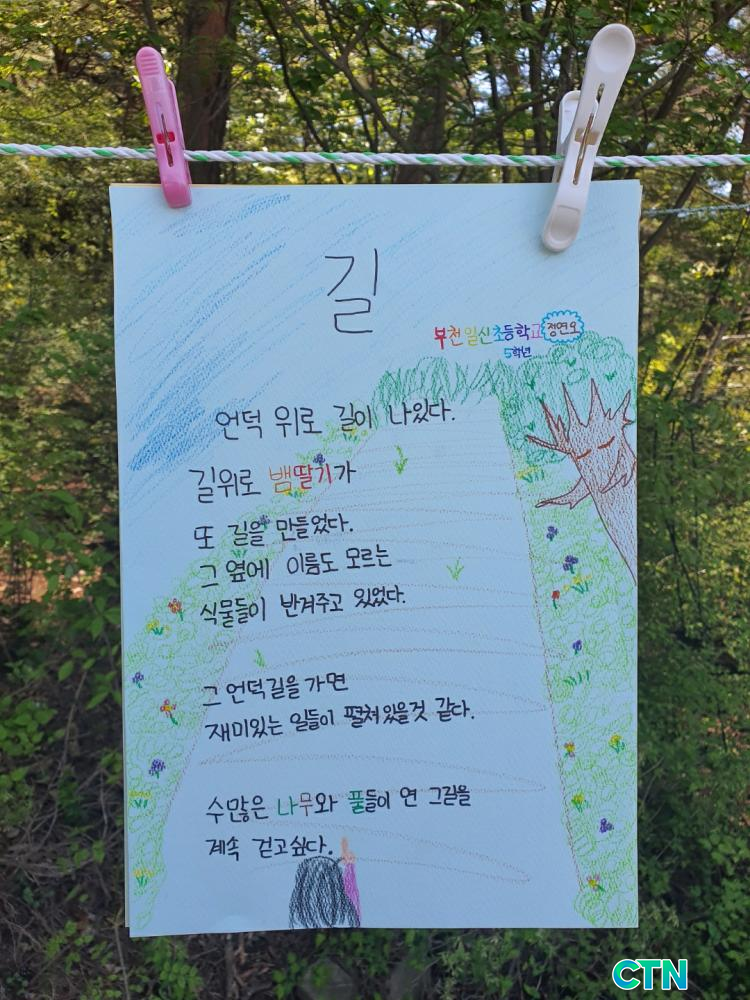 길
부천일신초등학교 정연오
5학년
언덕 위로 길이 나있다.
길위로 뱀딸기가
또 길을 만들었다.
그 옆에 이름도 모르는
식물들이 반겨주고 있었다.
그 언덕길을 가면
재미있는 일들이 펼쳐있을것 같다.
수많은 나무와 풀들이 연 그길을
계속 걷고싶다.
CTN